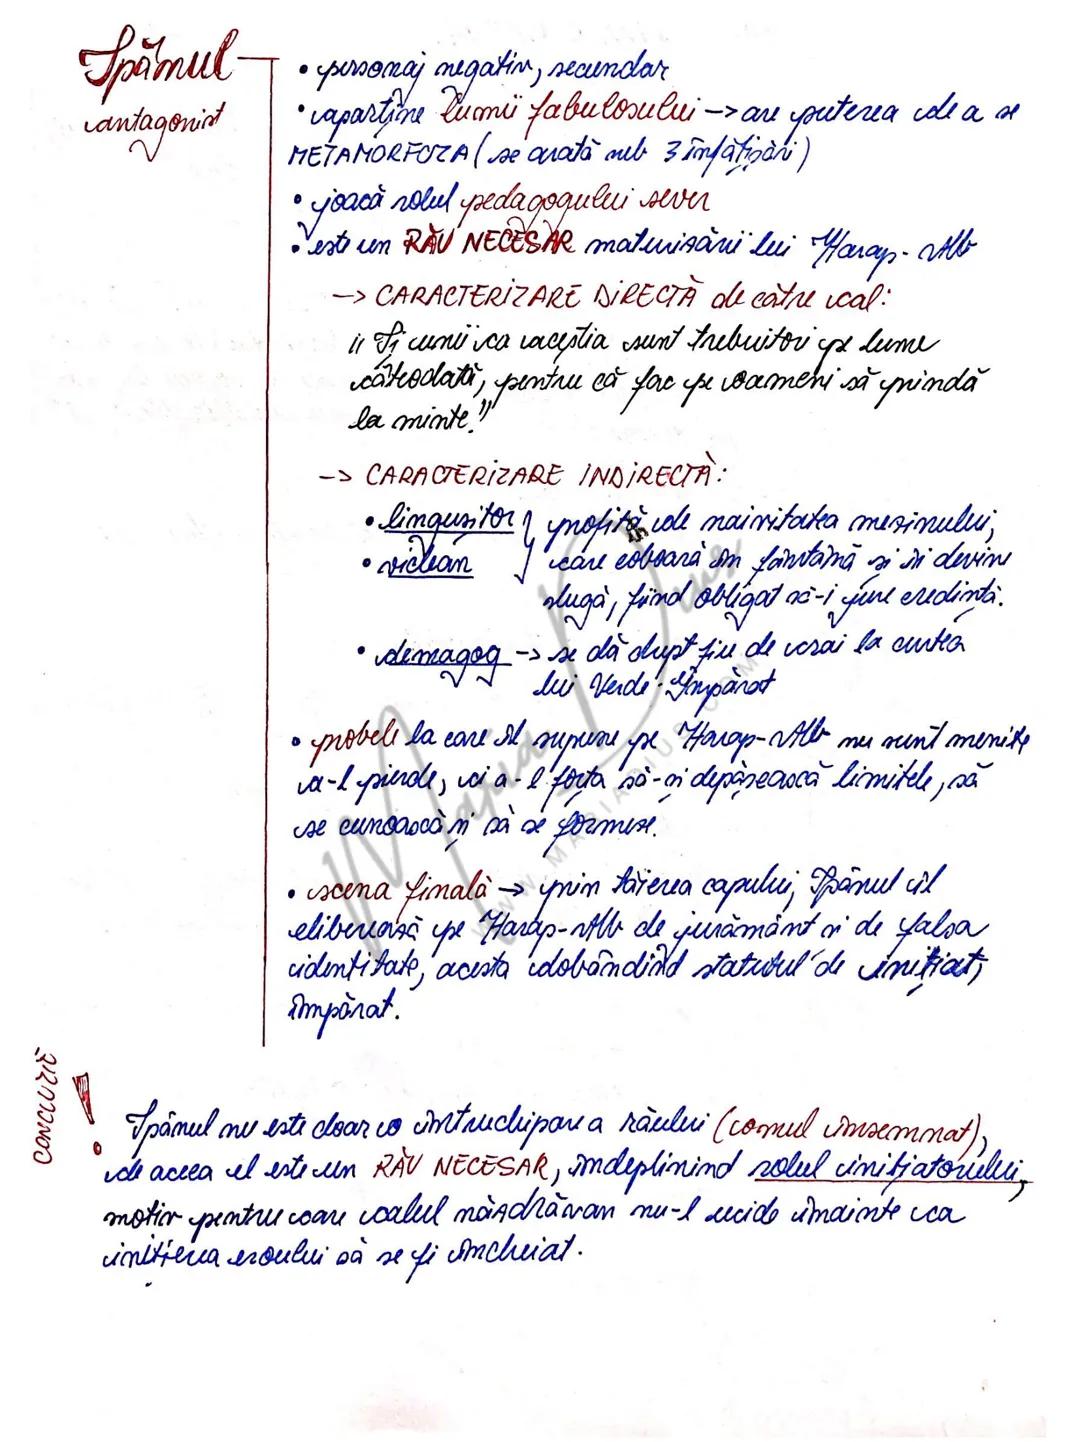 Spânul
antagonist
• personaj negativ, secundar
• aparține lumii fabulosului -> are puterea de a se
METAMORFOZA (se arată sub 3 înfățișări)
• joacă rolul pedagogului sever
• este un RĂU NECESAR maturizării lui Harap-Alb
-> CARACTERIZARE DIRECTĂ de către cal:
„Și unii ca aceștia sunt trebuitori pe lume
câteodată, pentru că fac pe oameni să prindă
la minte."
-> CARACTERIZARE INDIRECTĂ:
• lingușitor } profită de naivitatea mezinului,
• viclean care coboară în fântână și îi devine
slugă, fiind obligat să-i jure credință.
• demagog -> se dă drept fiu de crai la curtea
lui Verde-Împărat
• probele la care îl supune pe Harap-Alb nu sunt menite
a-l pierde, ci a-l forța să-și depășească limitele, să
se cunoască și să se formeze.
• scena finală -> prin tăierea capului, Spânul îl
eliberează pe Harap-Alb de jurământ și de falsa
identitate, acesta dobândind statutul de inițiat,
împărat.
CONCLUZIE
! Spânul nu este doar o întruchipare a răului (omul însemnat),
de aceea el este un RĂU NECESAR, îndeplinind rolul inițiatorului,
motiv pentru care calul năzdrăvan nu-l ucide înainte ca
inițierea eroului să se fi încheiat.
Maria Dius
WWW.MARIADIUS.COM